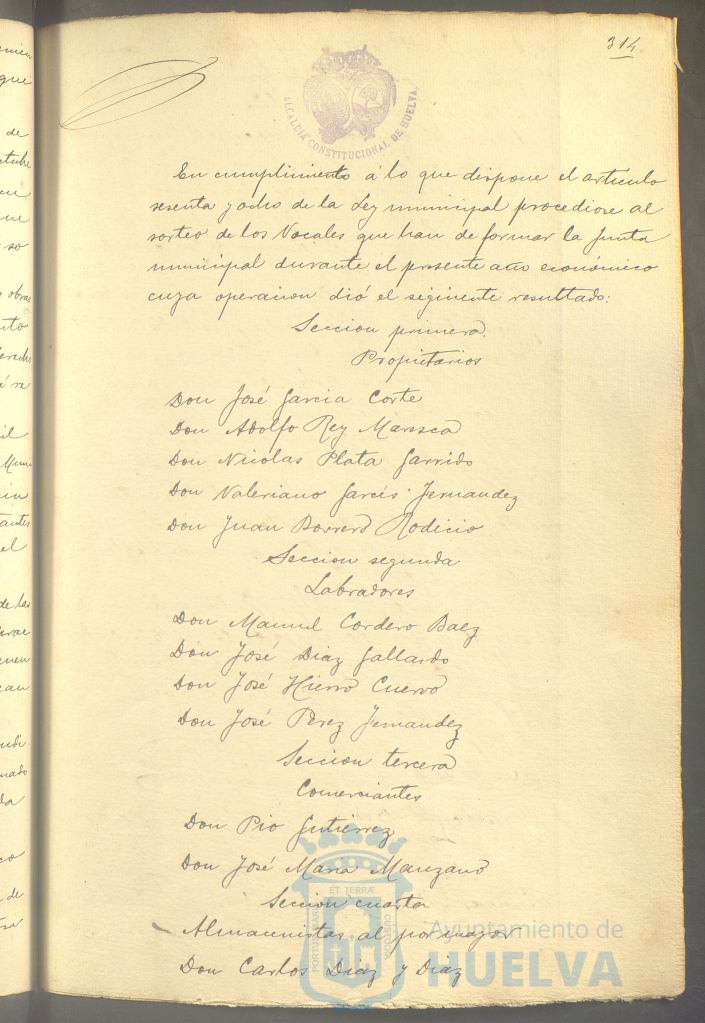 314
ALCALDIA CONSTITUCIONAL DE HUELVA
En cumplimiento á lo que dispone el artículo
sesenta y ocho de la Ley municipal procediose al
sorteo de los Vocales que han de formar la Junta
municipal durante el presente año económico
cuya operacion dió el siguiente resultado:
Seccion primera.
Propietarios
Don José Garcia Corte
Don Adolfo Rey Marisca
Don Nicolas Plata Garrido
Don Valeriano Garcés Fernandez
Don Juan Borrero Rodicio
Seccion segunda
Labradores
Don Manuel Cordero Baez
Don José Diaz Gallardo
Don José Hierro Cuervo
Don José Perez Fernandez
Seccion tercera
Comerciantes
Don Pio Gutierrez
Don José Maria Manzano
Seccion cuarta
Almacenistas al por mayor
Don Carlos Diaz y Diaz
ET TERRÆ
PORTUS MARIS
CUSTODIA
Ayuntamiento de
HUELVA